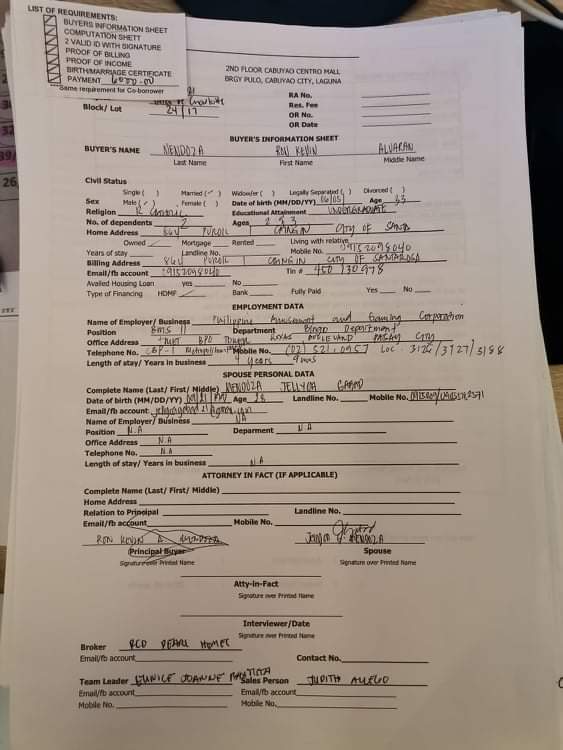 LIST OF REQUIREMENTS:
BUYERS INFORMATION SHEET
COMPUTATION SHETT
2 VALID ID WITH SIGNATURE
PROOF OF BILLING
PROOF OF INCOME
BIRTH/MARRIAGE CERTIFICATE
PAYMENT 6000.00
**Same requirement for Co-borrower
2ND FLOOR CABUYAO CENTRO MALL
BRGY PULO, CABUYAO CITY, LAGUNA
RA No.
Res. Fee
Block/ Lot 24/17 OR No.
OR Date
BUYER'S INFORMATION SHEET
BUYER'S NAME MENDOZA RON KEVIN ALVARAN
Last Name First Name Middle Name
Civil Status
Single ( ) Married ( ✓ ) Widow/er ( ) Legally Separated ( ) Divorced ( )
Sex Male ( ✓ ) Female ( ) Date of birth (MM/DD/YY) Age 33
Religion R. Catholic Educational Attainment UNDERGRADUATE
No. of dependents 2 Ages 2 & 3
Home Address 864 PUROK 1 CAINGIN CITY OF SANTA
Owned Mortgage Rented Living with relative
Years of stay Landline No. Mobile No. 09152098040
Billing Address 864 PUROK 1 CAINGIN CITY OF SANTA ROSA
Email/fb account 09152098040 Tin # 450 130 978
Availed Housing Loan yes No
Type of Financing HDMF Bank Fully Paid Yes No
EMPLOYMENT DATA
Name of Employer/ Business Philippine Amusement and Gaming Corporation
Position BMS II Department Bingo Department
Office Address BPO TOWER ROXAS BOULEVARD PASAY CITY
Telephone No. Mobile No. (02) 521.0957 LOC. 3126/3127/3188
Length of stay/ Years in business 4 years 9mos
SPOUSE PERSONAL DATA
Complete Name (Last/ First/ Middle) MENDOZA JELLYGA
Date of birth (MM/DD/YY) Age 28 Landline No. Mobile No.
Email/fb account
Name of Employer/ Business NA
Position N.A Deparment N.A
Office Address N.A
Telephone No. N.A
Length of stay/ Years in business N.A
ATTORNEY IN FACT (IF APPLICABLE)
Complete Name (Last/ First/ Middle)
Home Address
Relation to Principal Landline No.
Email/fb account Mobile No.
RON KEVIN A. MENDOZA MENDOZA
Principal Buyer Spouse
Signature over Printed Name Signature over Printed Name
Atty-in-Fact
Signature over Printed Name
Interviewer/Date
Signature over Printed Name
Broker RCD PEARL HOMES
Email/fb account Contact No.
Team Leader EUNICE JOANNE Sales Person JUDITH ALLEGO
Email/fb account Email/fb account
Mobile No. Mobile No.